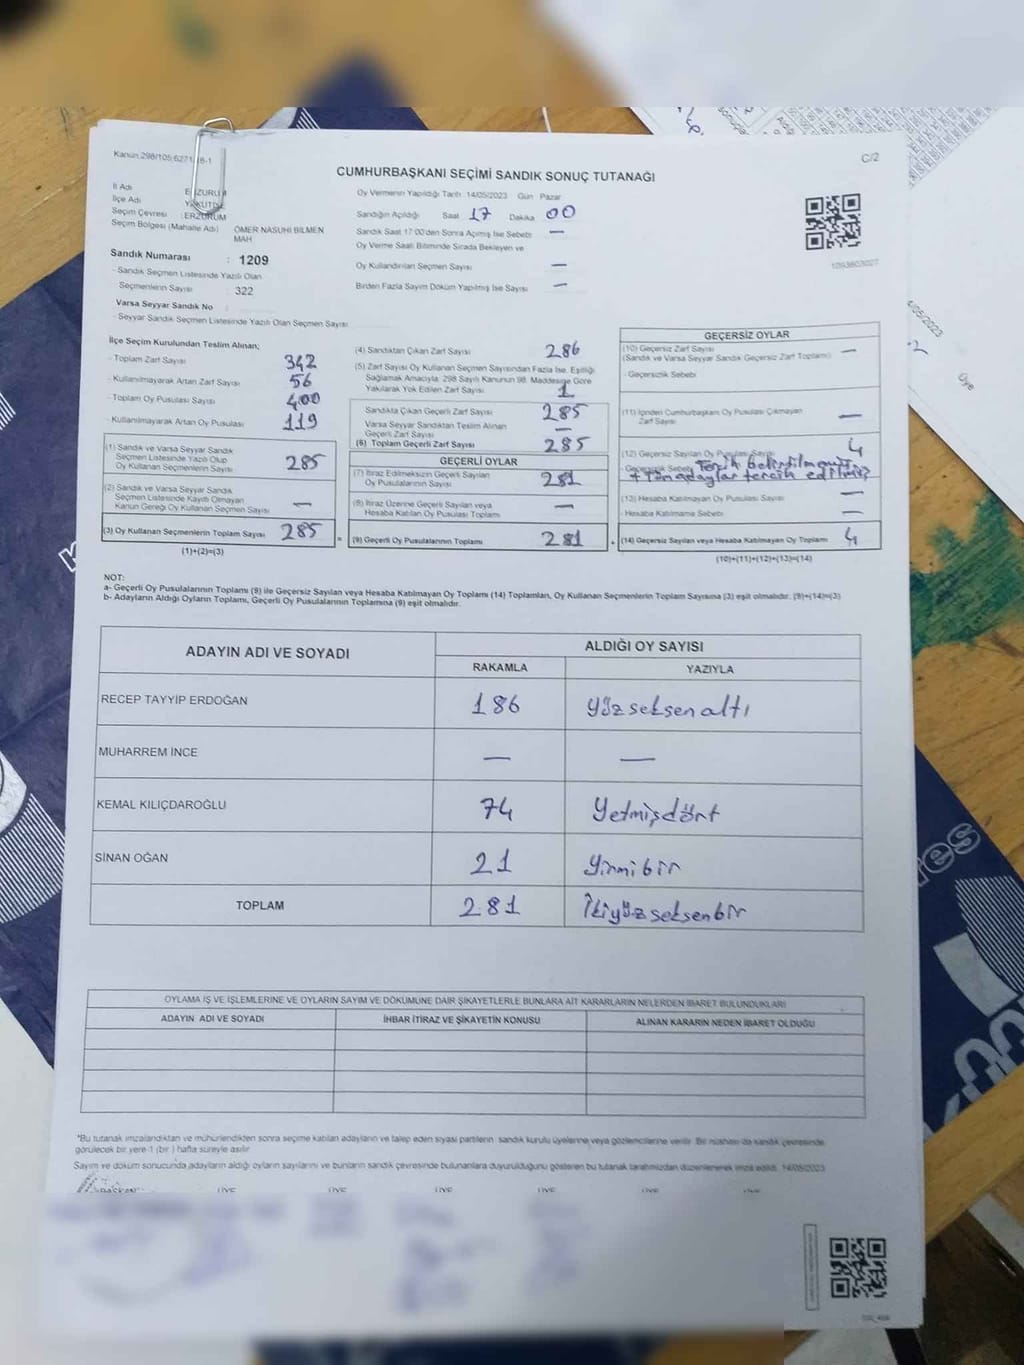 C/2
CUMHURBAŞKANI SEÇİMİ SANDIK SONUÇ TUTANAĞI
İl Adı
İlçe Adı
Seçim Çevresi : ERZURUM
Seçim Bölgesi (Mahalle Adı) ÖMER NASUHİ BİLMEN
MAH
Sandık Numarası : 1209
- Sandık Seçmen Listesinde Yazılı Olan
Seçmenlerin Sayısı : 322
Varsa Seyyar Sandık No :
- Seyyar Sandık Seçmen Listesinde Yazılı Olan Seçmen Sayısı
Oy Vermenin Yapıldığı Tarih 14/05/2023 Gün Pazar
Sandığın Açıldığı Saat 17 Dakika 00
Sandık Saat 17:00'den Sonra Açılmış İse Sebebi —
Oy Verme Saati Bitiminde Sırada Bekleyen ve
Oy Kullandırılan Seçmen Sayısı —
Birden Fazla Sayım Döküm Yapılmış İse Sayısı —
1093603027
İlçe Seçim Kurulundan Teslim Alınan;
- Toplam Zarf Sayısı 342
- Kullanılmayarak Artan Zarf Sayısı 56
- Toplam Oy Pusulası Sayısı 400
- Kullanılmayarak Artan Oy Pusulası 119
(1) Sandık ve Varsa Seyyar Sandık
Seçmen Listesinde Yazılı Olup
Oy Kullanan Seçmenlerin Sayısı 285
(2) Sandık ve Varsa Seyyar Sandık
Seçmen Listesinde Kayıtlı Olmayan
Kanun Gereği Oy Kullanan Seçmen Sayısı —
(3) Oy Kullanan Seçmenlerin Toplam Sayısı 285
(1)+(2)=(3)
(4) Sandıktan Çıkan Zarf Sayısı 286
(5) Zarf Sayısı Oy Kullanan Seçmen Sayısından Fazla İse, Eşitliği
Sağlamak Amacıyla, 298 Sayılı Kanunun 98. Maddesine Göre
Yakılarak Yok Edilen Zarf Sayısı 1
Sandıkta Çıkan Geçerli Zarf Sayısı 285
Varsa Seyyar Sandıktan Teslim Alınan
Geçerli Zarf Sayısı —
(6) Toplam Geçerli Zarf Sayısı 285
GEÇERLİ OYLAR
(7) İtiraz Edilmeksizin Geçerli Sayılan
Oy Pusulalarının Sayısı 281
(8) İtiraz Üzerine Geçerli Sayılan veya
Hesaba Katılan Oy Pusulası Toplamı —
(9) Geçerli Oy Pusulalarının Toplamı 281
GEÇERSİZ OYLAR
(10) Geçersiz Zarf Sayısı —
(Sandık ve Varsa Seyyar Sandık Geçersiz Zarf Toplamı)
- Geçersizlik Sebebi
(11) İçinden Cumhurbaşkanı Oy Pusulası Çıkmayan
Zarf Sayısı —
(12) Geçersiz Sayılan Oy Pusulası Sayısı 4
- Geçersizlik Sebebi Tercih belirtilmemiş
+ tüm adaylar tercih edilmiş
(13) Hesaba Katılmayan Oy Pusulası Sayısı —
- Hesaba Katılmama Sebebi —
(14) Geçersiz Sayılan veya Hesaba Katılmayan Oy Toplamı 4
(10)+(11)+(12)+(13)=(14)
NOT:
a- Geçerli Oy Pusulalarının Toplamı (9) ile Geçersiz Sayılan veya Hesaba Katılmayan Oy Toplamı (14) Toplamları, Oy Kullanan Seçmenlerin Toplam Sayısına (3) eşit olmalıdır. (9)+(14)=(3)
b- Adayların Aldığı Oyların Toplamı, Geçerli Oy Pusulalarının Toplamına (9) eşit olmalıdır.
ADAYIN ADI VE SOYADI ALDIĞI OY SAYISI
RAKAMLA YAZIYLA
RECEP TAYYİP ERDOĞAN 186 Yüz seksen altı
MUHARREM İNCE — —
KEMAL KILIÇDAROĞLU 74 Yetmişdört
SİNAN OĞAN 21 Yirmi bir
TOPLAM 281 İkiyüz seksenbir
OYLAMA İŞ VE İŞLEMLERİNE VE OYLARIN SAYIM VE DÖKÜMÜNE DAİR ŞİKAYETLERLE BUNLARA AİT KARARLARIN NELERDEN İBARET BULUNDUKLARI
ADAYIN ADI VE SOYADI İHBAR İTİRAZ VE ŞİKAYETİN KONUSU ALINAN KARARIN NEDEN İBARET OLDUĞU
*Bu tutanak imzalandıktan ve mühürlendikten sonra seçime katılan adayların ve talep eden siyasi partilerin sandık kurulu üyelerine veya gözlemcilerine verilir. Bir nüshası da sandık çevresinde
görülecek bir yere 1 (bir ) hafta süreyle asılır
Sayım ve döküm sonucunda adayların aldığı oyların sayılarını ve bunların sandık çevresinde bulunanlara duyurulduğunu gösteren bu tutanak tarafımızdan düzenlenerek imza edildi. 14/05/2023
BAŞKAN ÜYE ÜYE ÜYE ÜYE ÜYE ÜYE
Üye